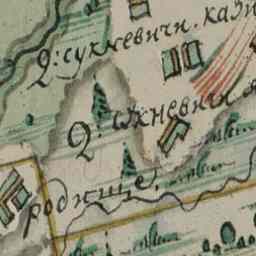 Д: сукневичи. кази
Д: сукневичи
родище,